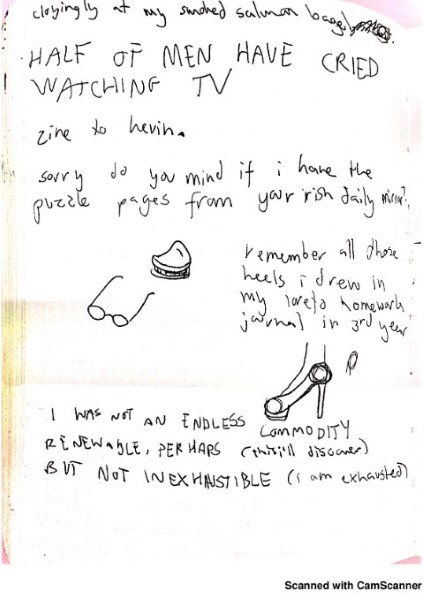 cloyingly at my smoked salmon bagel
HALF OF MEN HAVE CRIED
WATCHING TV
zine to kevin.
sorry do you mind if i have the
puzzle pages from your irish daily mirror?
remember all those
heels i drew in
my loreto homework
journal in 3rd year
I WAS NOT AN ENDLESS COMMODITY
RENEWABLE, PERHAPS (this i'll discover)
BUT NOT INEXHAUSTIBLE (i am exhausted)
Scanned with CamScanner